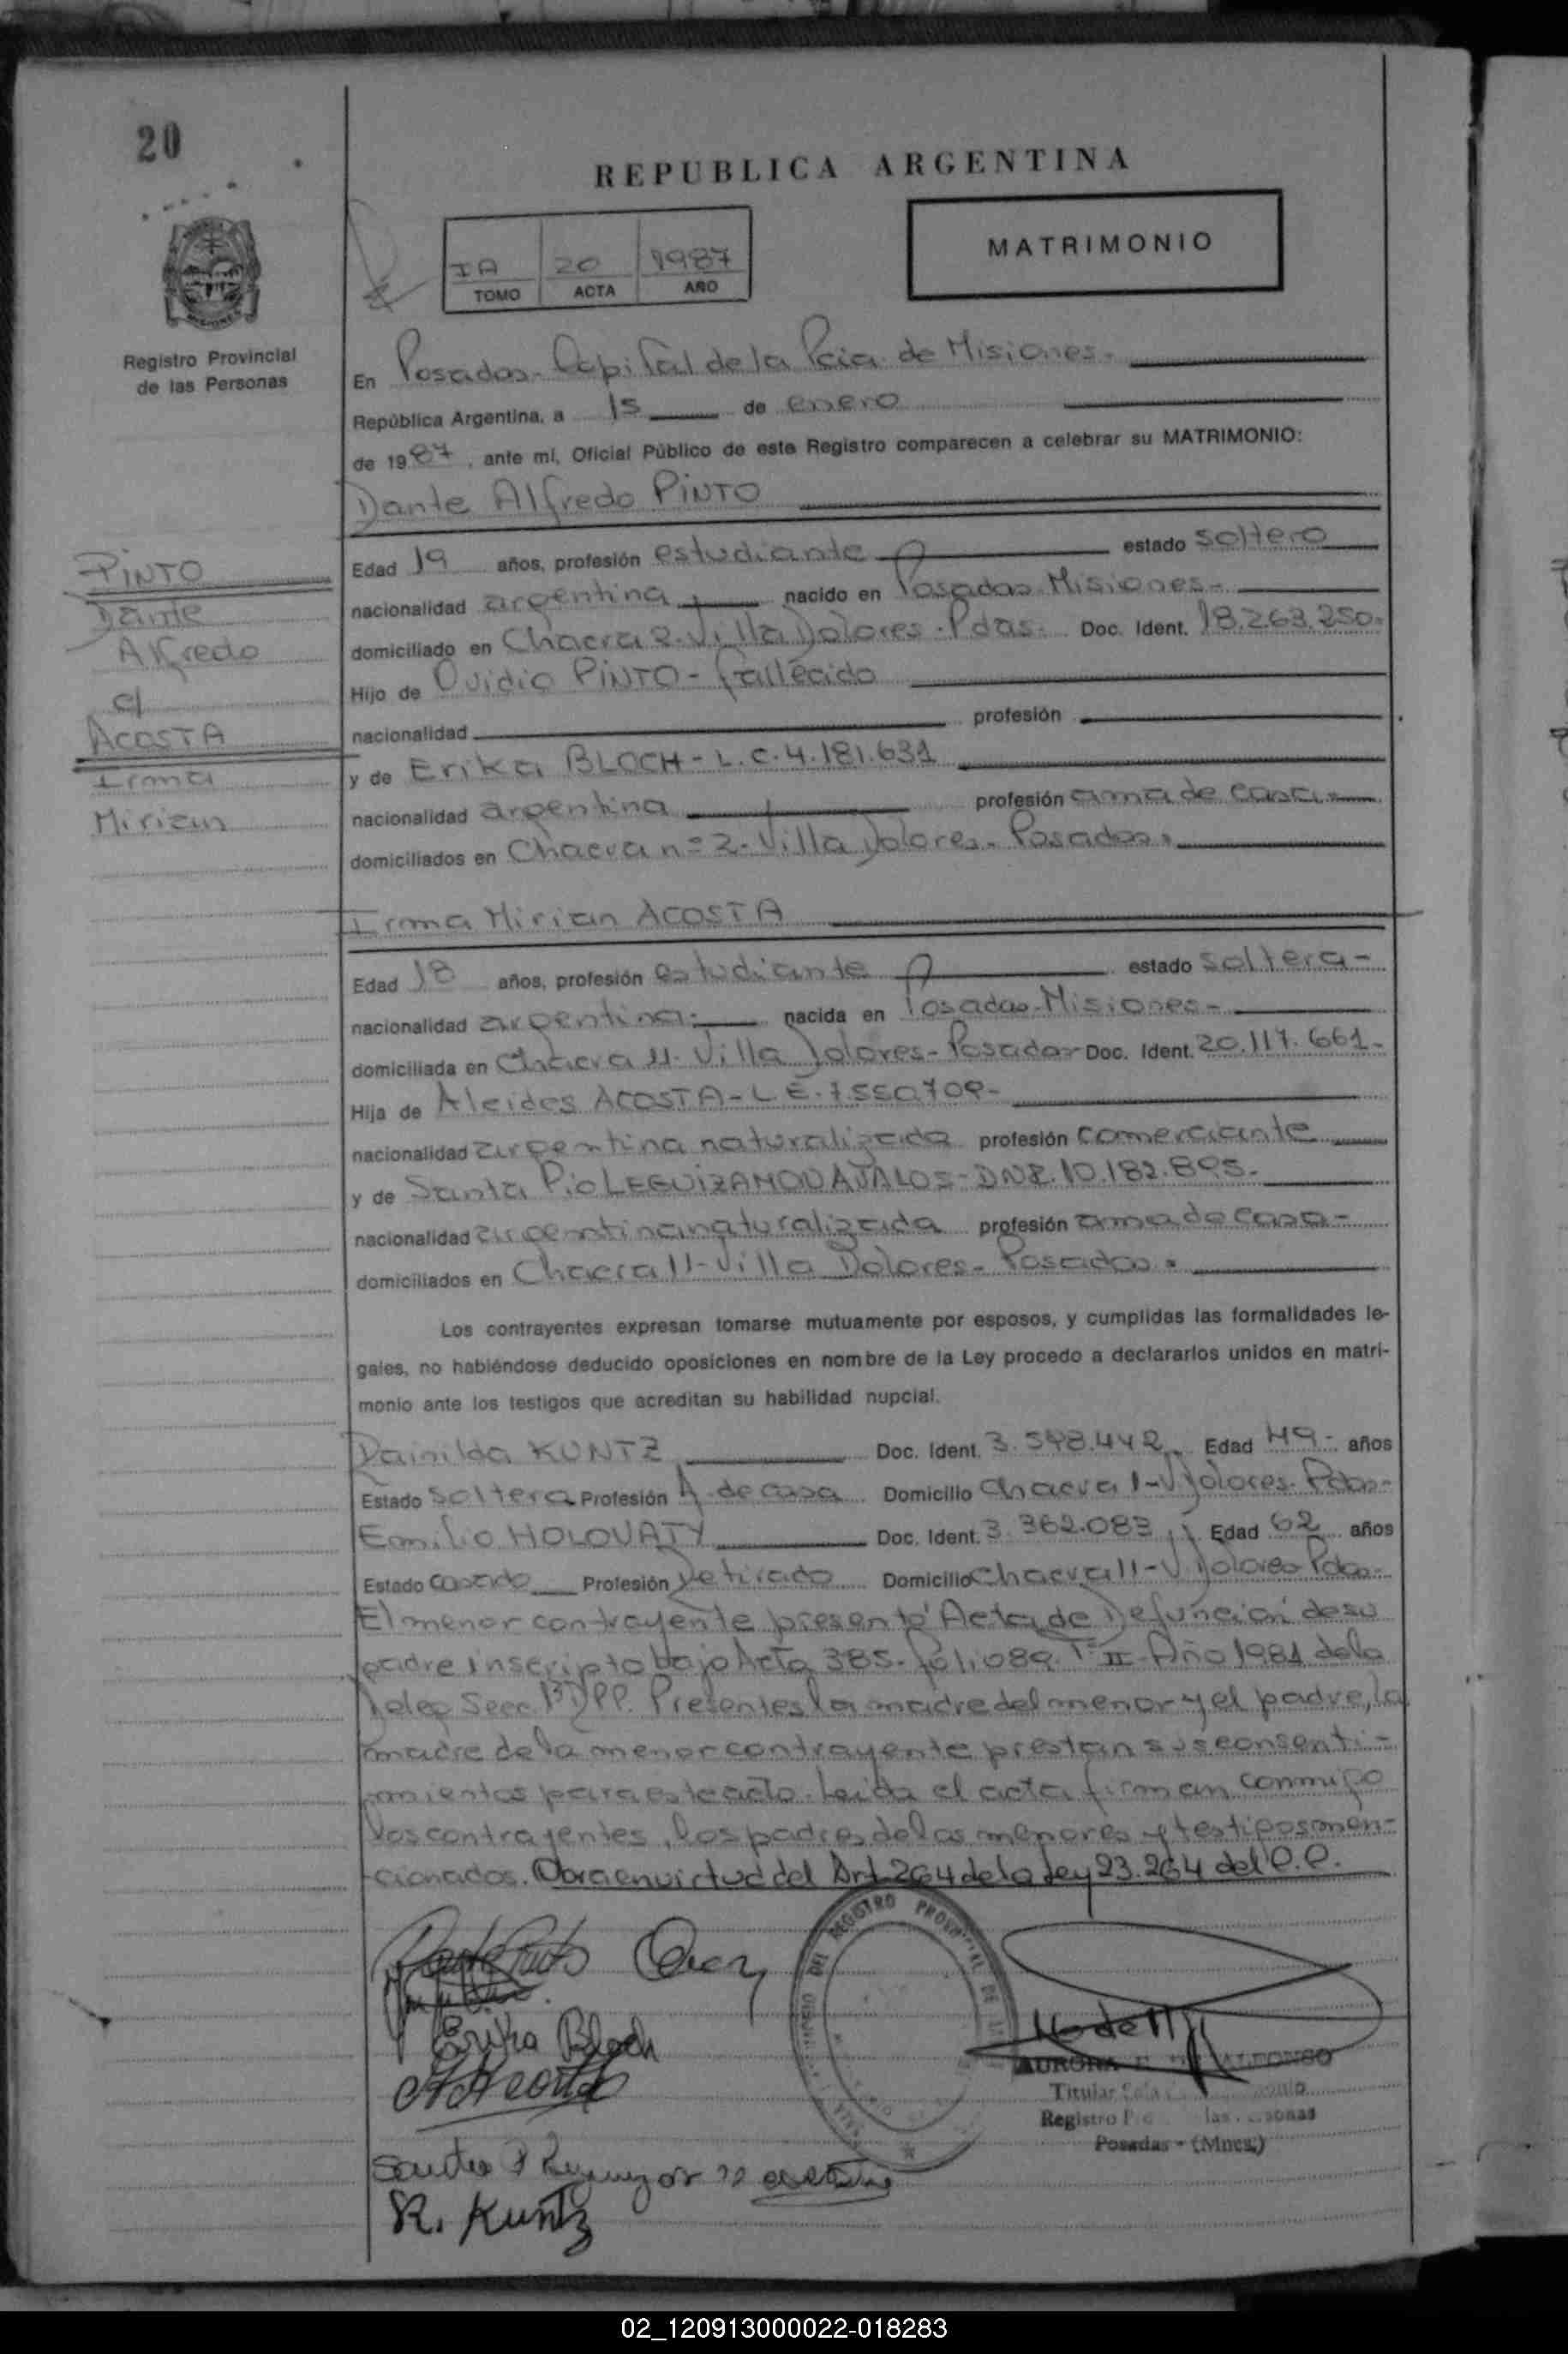 20
REPUBLICA ARGENTINA
MATRIMONIO
IA 20 1987
TOMO ACTA AÑO
Registro Provincial
de las Personas
En Posadas-Capital de la Pcia. de Misiones-
República Argentina, a 15 de enero
de 1987, ante mí, Oficial Público de este Registro comparecen a celebrar su MATRIMONIO:
Dante Alfredo PINTO
PINTO
Dante
Alfredo
c/
ACOSTA
Irma
Mirian
Edad 19 años, profesión estudiante estado soltero
nacionalidad argentina nacido en Posadas Misiones-
domiciliado en Chacra 2-Villa Dolores-Pdas- Doc. Ident. 18.263.250-
Hijo de Ovidio PINTO - fallecido
nacionalidad profesión
y de Erika BLOCH - L.C.4.181.631
nacionalidad argentina profesión ama de casa-
domiciliados en Chacra nº 2-Villa Dolores- Posadas-
Irma Mirian ACOSTA
Edad 18 años, profesión estudiante estado soltera-
nacionalidad argentina- nacida en Posadas-Misiones-
domiciliada en Chacra 11-Villa Dolores-Posadas- Doc. Ident. 20.117.661-
Hija de Aleides ACOSTA-L.E.7.550.709-
nacionalidad argentina naturalizada profesión comerciante
y de Santa Pio LEGUIZAMON AJALOS-DNI.10.182.895-
nacionalidad argentina naturalizada profesión ama de casa-
domiciliados en Chacra 11-Villa Dolores-Posadas-
Los contrayentes expresan tomarse mutuamente por esposos, y cumplidas las formalidades le-
gales, no habiéndose deducido oposiciones en nombre de la Ley procedo a declararlos unidos en matri-
monio ante los testigos que acreditan su habilidad nupcial.
Rainilda KUNTZ Doc. Ident. 3.548.442 Edad 49- años
Estado soltera Profesión A. de casa Domicilio Chacra 1-V.Dolores-Pdas-
Emilio HOLOVATY Doc. Ident. 3.362.083 Edad 62 años
Estado casado Profesión retirado Domicilio Chacra 11-V.Dolores Pdas-
El menor contrayente presentó Acta de Defunción de su
padre inscripto bajo Acta 385-folio 89 Tº II-Año 1981 de la
Deleg Secc. 1ª Presentes la madre del menor y el padre, la
madre de la menor contrayente prestan sus consenti-
mientos para este acto. Leida el acta firman conmigo
los contrayentes, los padres de los menores y testigos men-
cionados. Obra en virtud del Art 264 de la Ley 23.264 del C.C.
Erika Bloch
A Acosta
R. Kuntz
DEL REGISTRO PROVINCIAL DE
AURORA ALFONSO
Titular
Registro
Posadas - (Mnes.)
02_120913000022-018283